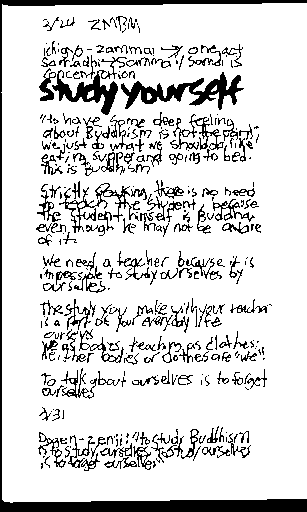 3/24 ZMBM
ichigyo-zammai → one act
samadhi → Sammai/Samai is
concentration
Study yourself
"to have some deep feeling
about Buddhism is not the point;
we just do what we should do, like
eating supper and going to bed.
This is Buddhism"
Strictly speaking, there is no need
to teach the student, because
the student himself is Buddha,
even though he may not be aware
of it.
We need a teacher because it is
impossible to study ourselves by
ourselves.
The study you make with your teacher
is a part of your everyday life
ourselves
We as bodies, teaching as clothes;
neither bodies or clothes are "we".
To talk about ourselves is to forget
ourselves
3/31
Dogen-zenji: "to study Buddhism
is to study ourselves. To study ourselves
is to forget ourselves"